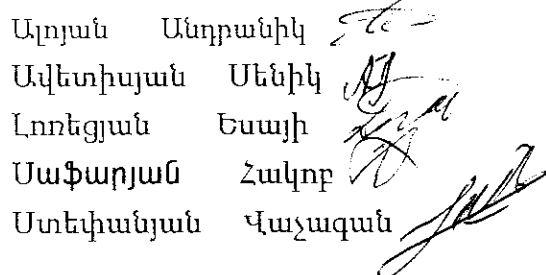 Ալոյան Անդրանիկ
Ավետիսյան Սենիկ
Լոռեցյան Եսայի
Սաֆարյան Հակոբ
Ստեփանյան Վաչագան